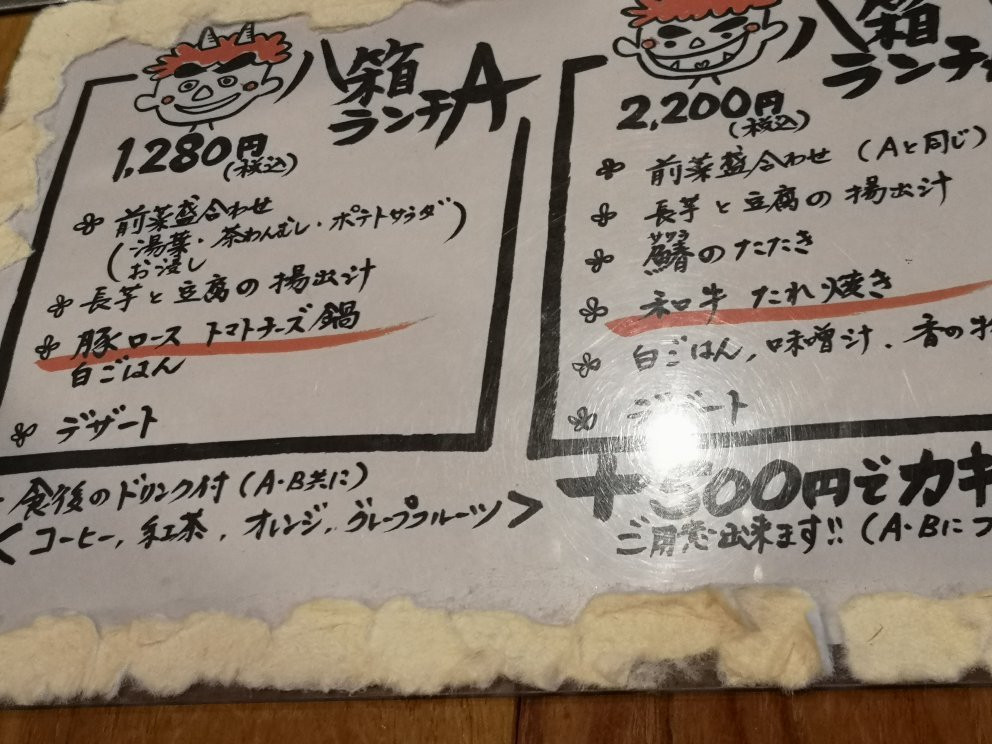 八箱
ランチA
1,280円
(税込)
前菜盛合わせ
(湯葉・茶わんむし・ポテトサラダ)
お浸し
長芋と豆腐の揚出汁
豚ロース トマトチーズ鍋
白ごはん
デザート
八箱
ランチ
2,200円
(税込)
前菜盛合わせ (Aと同じ)
長芋と豆腐の揚出汁
サワラ
鰆のたたき
和牛 たれ焼き
白ごはん, 味噌汁、香の物
デザート
食後のドリンク付 (A・B共に)
<コーヒー, 紅茶, オレンジ, グレープフルーツ>
+500円でカキ
ご用意出来ます!! (A・Bに